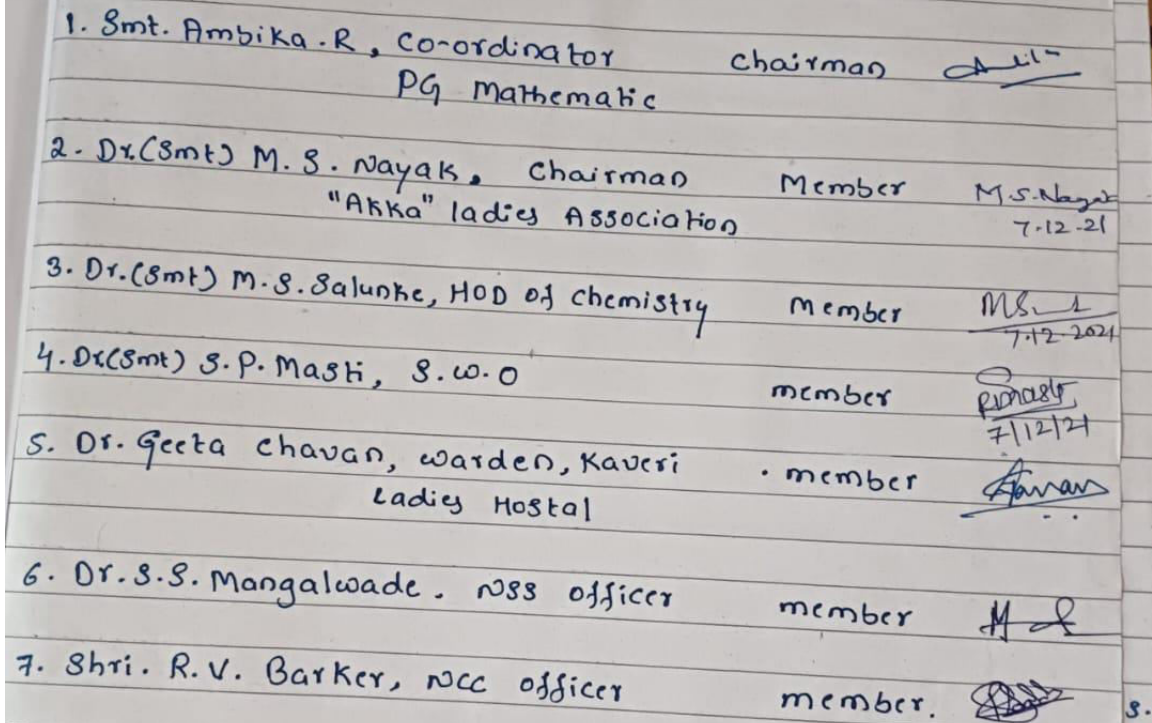 1. Smt. Ambika.R, Co-ordinator Chairman
PG Mathematic
2. Dr.(Smt) M.S. Nayak, Chairman Member M.S.Nayak
"Akka" ladies Association 7.12.21
3. Dr.(Smt) M.S.Salunke, HOD of Chemistry Member
7.12.2021
4. Dr(Smt) S.P. Masti, S.W.O member
7/12/21
5. Dr. Geeta Chavan, Warden, Kaveri member
Ladies Hostal
6. Dr.S.S. Mangalwade. NSS officer member
7. Shri. R.V. Barker, NCC officer member.